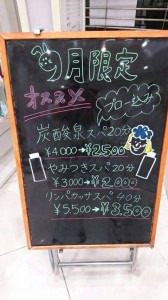 9月限定
オススメ
ブロー込み
炭酸泉スパ20分
¥4000→¥2500
やみつきスパ20分
¥3000→¥2000
リンパカッサスパ40分
¥5,500→¥3500